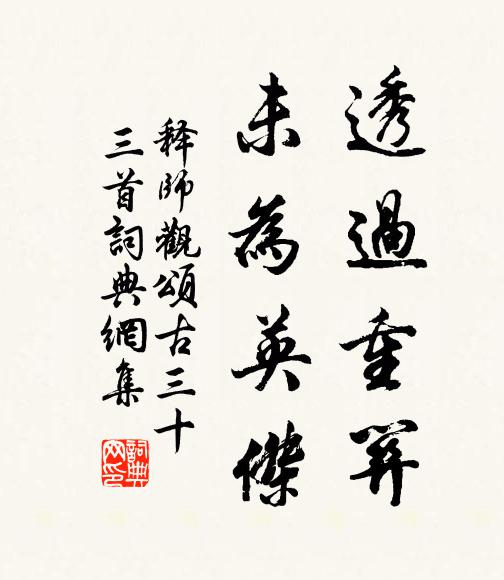 透過重關
未為英傑
释師觀頌古三十
三首詞典網集
詞典
网印